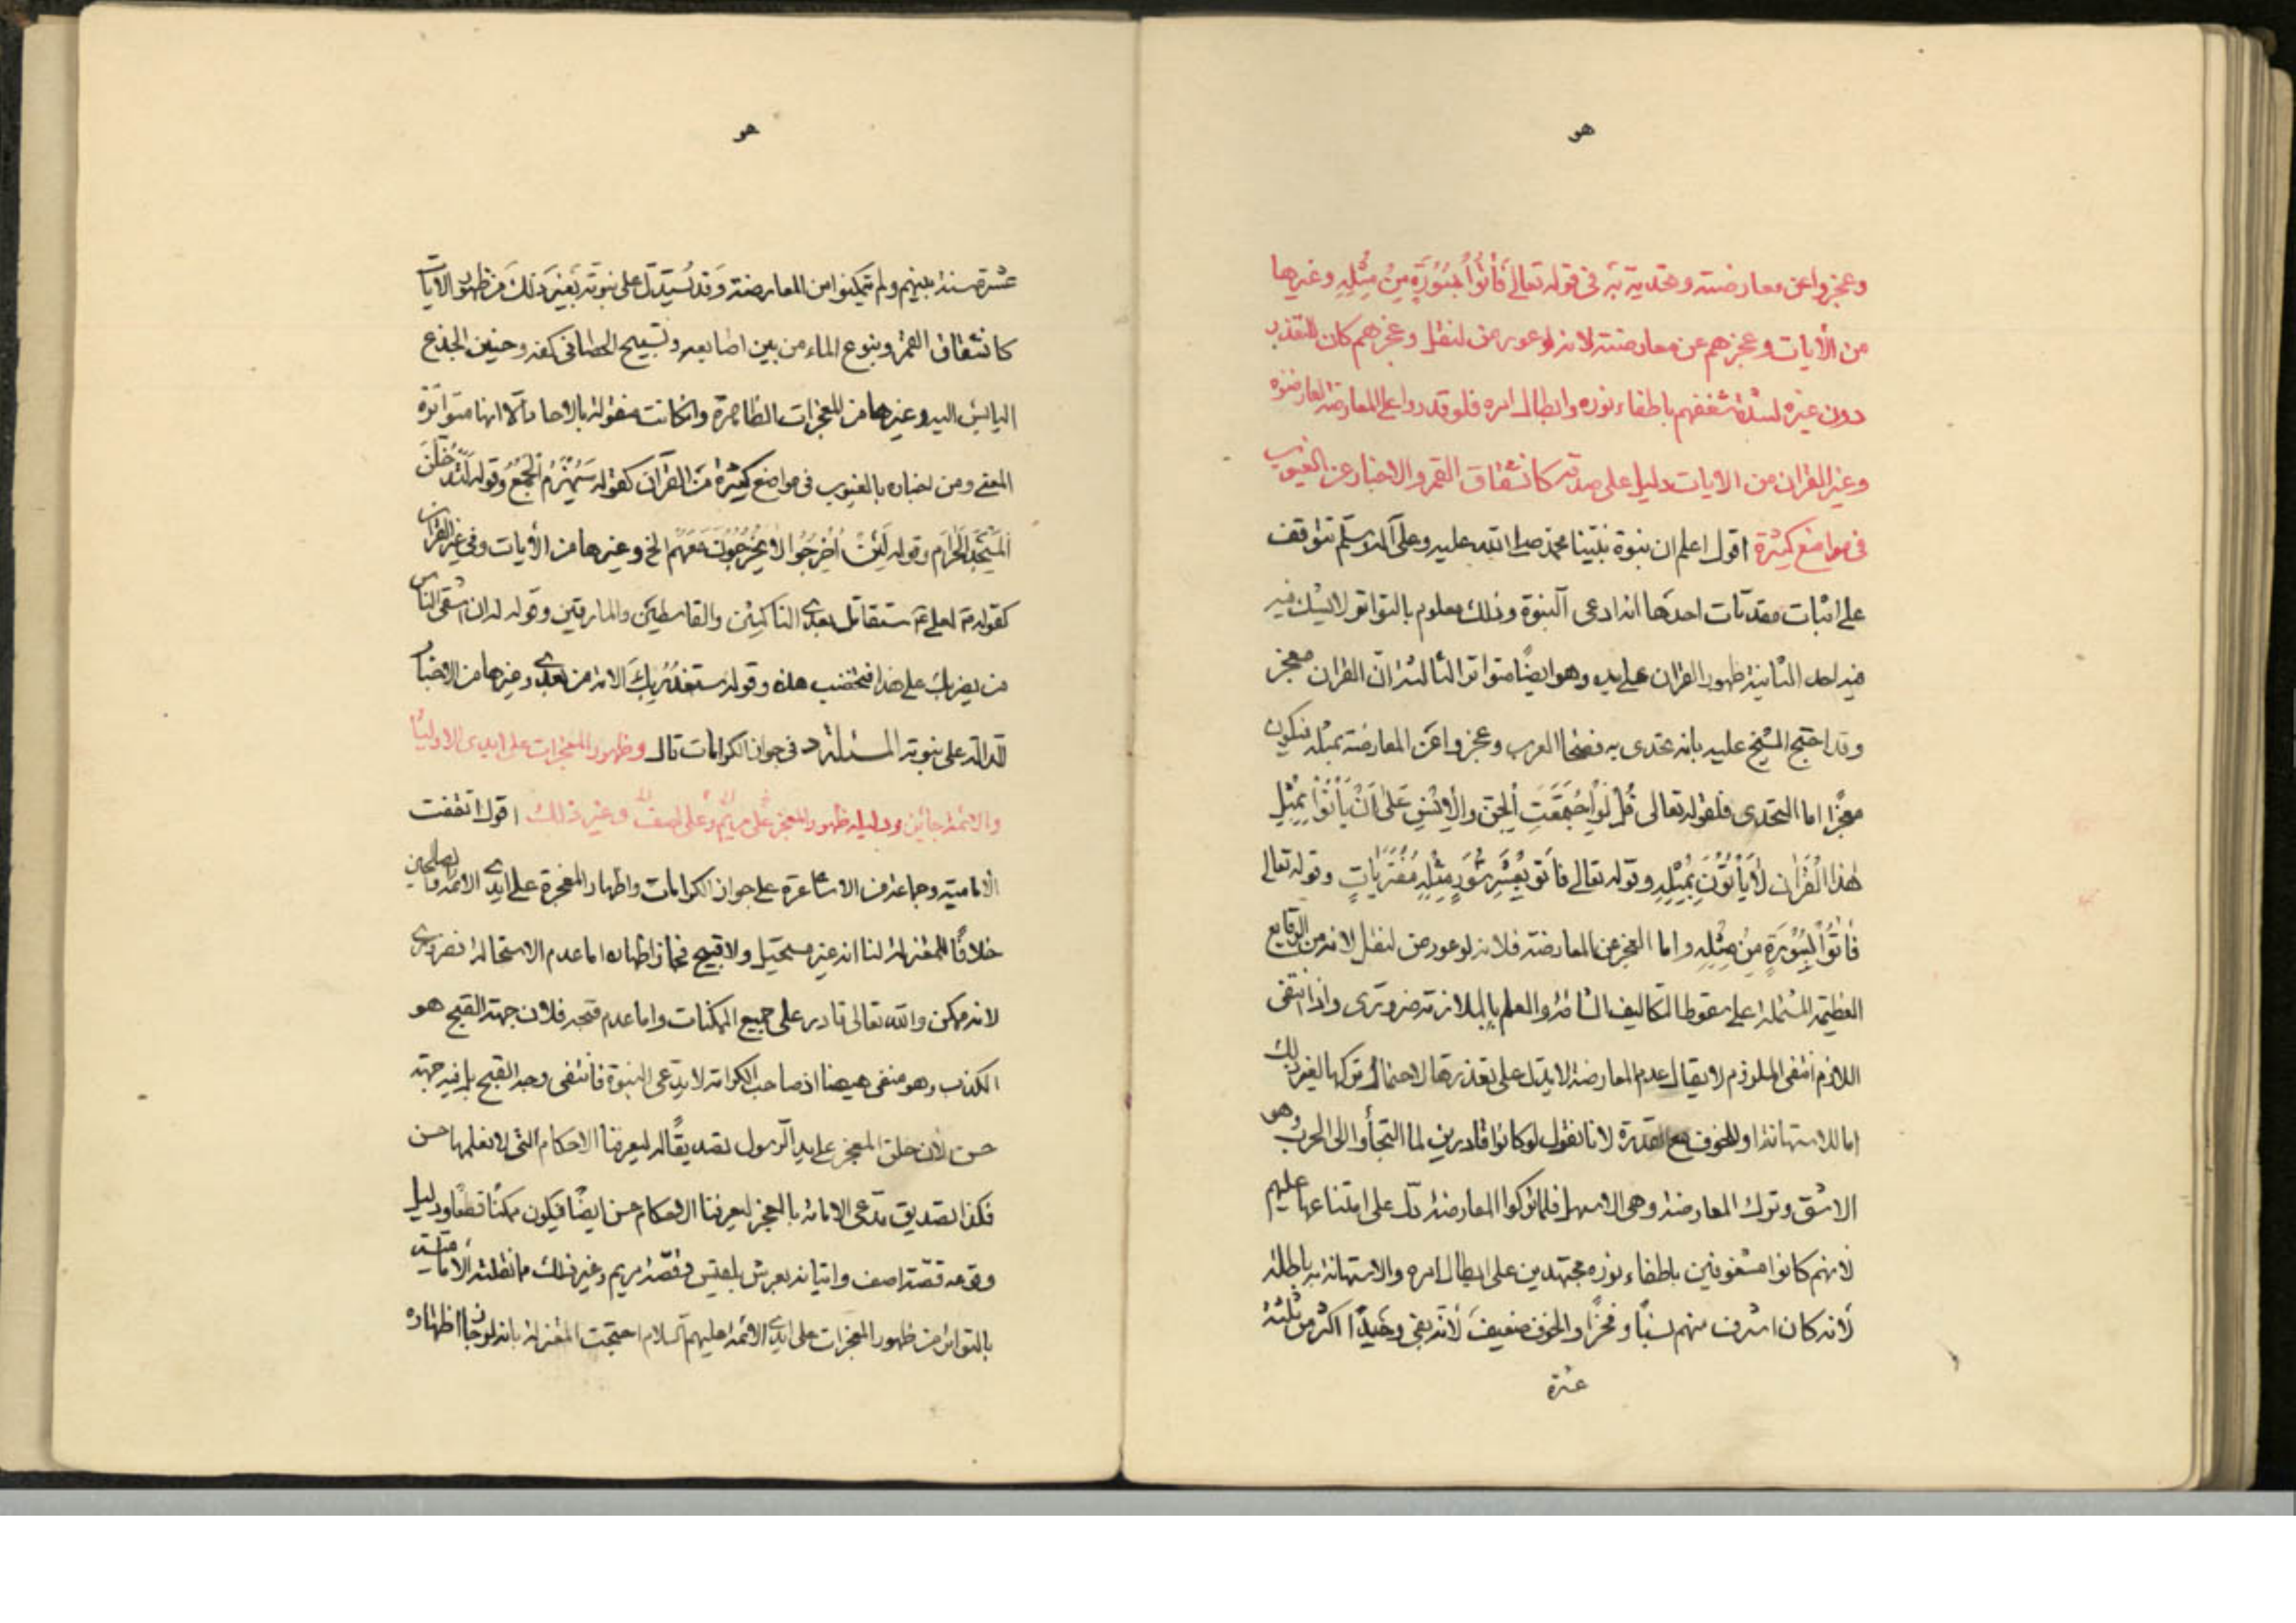 هو
وعجزوا عن معارضته وتحديه به فى قوله تعالى فَأْتُوا بِسُورَةٍ مِنْ مِثْلِهِ وغيرها
من الأيات وعجزهم عن معارضته لانه لو عورض لنقل وعجزهم كان للتعذر
دون غيره لشدة شغفهم باطفاء نوره وابطال امره فلو قدروا على المعارضة لعارضوه
وغير القران من الايات دليل على صدقه كانشقاق القمر والاخبار عن الغيوب
فى مواضع كثيرة اقول اعلم ان نبوة نبينا محمد صلى الله عليه وعلى آله وسلم تتوقف
على اثبات مقدمات احدها انه ادعى النبوة وذلك معلوم بالتواتر لا يشك فيه
فيه احد الثانية ظهور القران على يده وهو ايضًا متواتر الثالثة انّ القران معجز
وقد احتج الشيخ عليه بانه تحدى به فصحا العرب وعجزوا عن المعارضة بمثله فيكون
معجزًا اما التحدى فلقوله تعالى قُلْ لَوِ اجْتَمَعَتِ الْجِنّ والْإِنْسِ عَلىٰ اَنْ يَأْتُوا بِمِثْلِ
هٰذَا الْقُرْاٰن لَا يَأْتُوْنَ بِمِثْلِهِ وقوله تعالى فأتو بِعَشْرِ سُوَرٍ مِثْلِهِ مُفْتَرَيَاتٍ وقوله تعالى
فَأتُوْا بِسُوْرَةٍ مِنْ مِثْلِهِ واما العجز عن المعارضة فلانه لو عورض لنقل لانه من الوقايع
العظيمة المشتملة على سقوط التكاليف الشاقة والعلم بالملازمة ضرورى واذا انتفى
اللازم انتفى الملزوم لا يقال عدم المعارضة لا يدل على تعذرها لاحتمال تركها لغير ذلك
اما للاستهانة او للخوف مع القدرة لانا نقول لو كانوا قادرين لما التجأوا الى الحرب وهو
الاشق وترك المعارضة وهى الاسهل فلما تركوا المعارضة دل على امتناعها عليهم
لانهم كانوا مشغوفين باطفاء نوره مجتهدين على ابطال امره والاستهانة به باطلة
لأنه كان اشرف منهم نسبًا وفخرًا والخوف ضعيف لأنه بقى وحيدًا اكثر من ثلثة
عشرة
هو
عشرة سنة بينهم ولم يتمكنوا من المعارضة وَقد يُستدلّ على نبوّته بغير ذلك من ظهور الايات
كانشقاق القمر ونبوع الماء من بين اصابعه وتسبيح الحصا فى كفه وحنين الجذع
اليابس اليه وغيرها من المعجزات الظاهرة وان كانت منقولة بالاحاد الّا انها متواترة
المعنى ومن اخباره بالغيوب فى مواضع كثيرة من القرآن كقوله سَيُهْزَمُ الْجَمْعُ وقوله لَتَدْخُلُنَّ
الْمَسْجِدَ الْحَرَام وقوله لَئِنْ اُخْرِجُوا لَا يَخْرُجُوْنَ مَعَهُمْ الخ وغيرها من الأيات وفى غير القران
كقوله ص لعلى ع ستقاتل بعدى الناكثين والقاسطين والمارقين وقوله له ان اشقى الناس
من يضربك على هذا فتخضب هذه وقوله ستغدر بك الامة من بعدى وغيرها من الاخبار
الدالة على نبوته المسئلة د فى جواز الكرامات قال وظهور المعجزات على ايدى الاوليا
والائمة جائز ودليله ظهور المعجز على مريم وعلى اصف وغير ذلك اقول اتفقت
الامامية وجماعة من الاشاعرة على جواز الكرامات واظهار المعجزة على ايدى الائمة والصالحين
خلافًا للمعتزلة لنا انه غير مستحيل ولا قبيح فجاز اظهاره اما عدم الاستحالة فضرورى
لانه ممكن والله تعالى قادر على جميع الممكنات واما عدم قبحه فلان جهة القبح هو
الكذب وهو منفى هيهنا اذ صاحب الكرامة لا يدعى النبوة فانتفى وجه القبح بل فيه جهة
حسن لان خلق المعجز على يد الرسول تصديقًا له ليعرفنا الاحكام التى لا نعلمها حسن
فكذا تصديق مدعى الامامة بالمعجز ليعرفنا الاحكام حسن ايضًا فيكون ممكنًا قطعًا ودليل
وقوعه قصّة اصف واتيانه بعرش بلقيس وقصّة مريم وغير ذلك ما نقلته الامامية
بالتواتر من ظهور المعجزات على ايدى الائمة عليهم السلام احتجت المعتزلة بانه لو جاز اظهاره